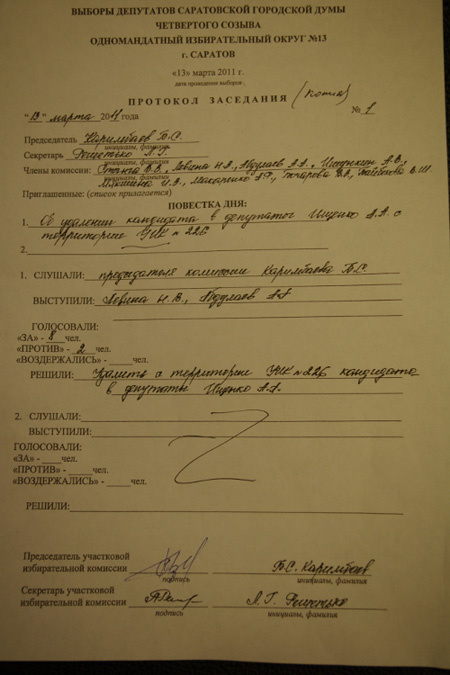 ВЫБОРЫ ДЕПУТАТОВ САРАТОВСКОЙ ГОРОДСКОЙ ДУМЫ
ЧЕТВЕРТОГО СОЗЫВА
ОДНОМАНДАТНЫЙ ИЗБИРАТЕЛЬНЫЙ ОКРУГ №13
г. САРАТОВ
«13» марта 2011 г.
дата проведения выборов
ПРОТОКОЛ ЗАСЕДАНИЯ (копия)
"13" марта 2011 года № 1
Председатель Каримбаев Б.С.
инициалы, фамилия
Секретарь
инициалы, фамилия
Члены комиссии: Левина Н.В., Абдулаев А.А.,
Макаренко
Приглашенные: (список прилагается)
ПОВЕСТКА ДНЯ:
1. Об удалении кандидата в депутаты Ищенко А.А. с
территории УИК №226
2.
1. СЛУШАЛИ: председателя комиссии Каримбаева Б.С.
ВЫСТУПИЛИ: Левина Н.В., Абдулаев А.А.
ГОЛОСОВАЛИ:
«ЗА» - 8 чел.
«ПРОТИВ» - 2 чел.
«ВОЗДЕРЖАЛИСЬ» - чел.
РЕШИЛИ: Удалить с территории УИК №226 кандидата
в депутаты Ищенко А.А.
2. СЛУШАЛИ:
ВЫСТУПИЛИ:
ГОЛОСОВАЛИ:
«ЗА» - чел.
«ПРОТИВ» - чел.
«ВОЗДЕРЖАЛИСЬ» - чел.
РЕШИЛИ:
Председатель участковой
избирательной комиссии Б.С. Каримбаев
подпись инициалы, фамилия
Секретарь участковой
избирательной комиссии
подпись инициалы, фамилия